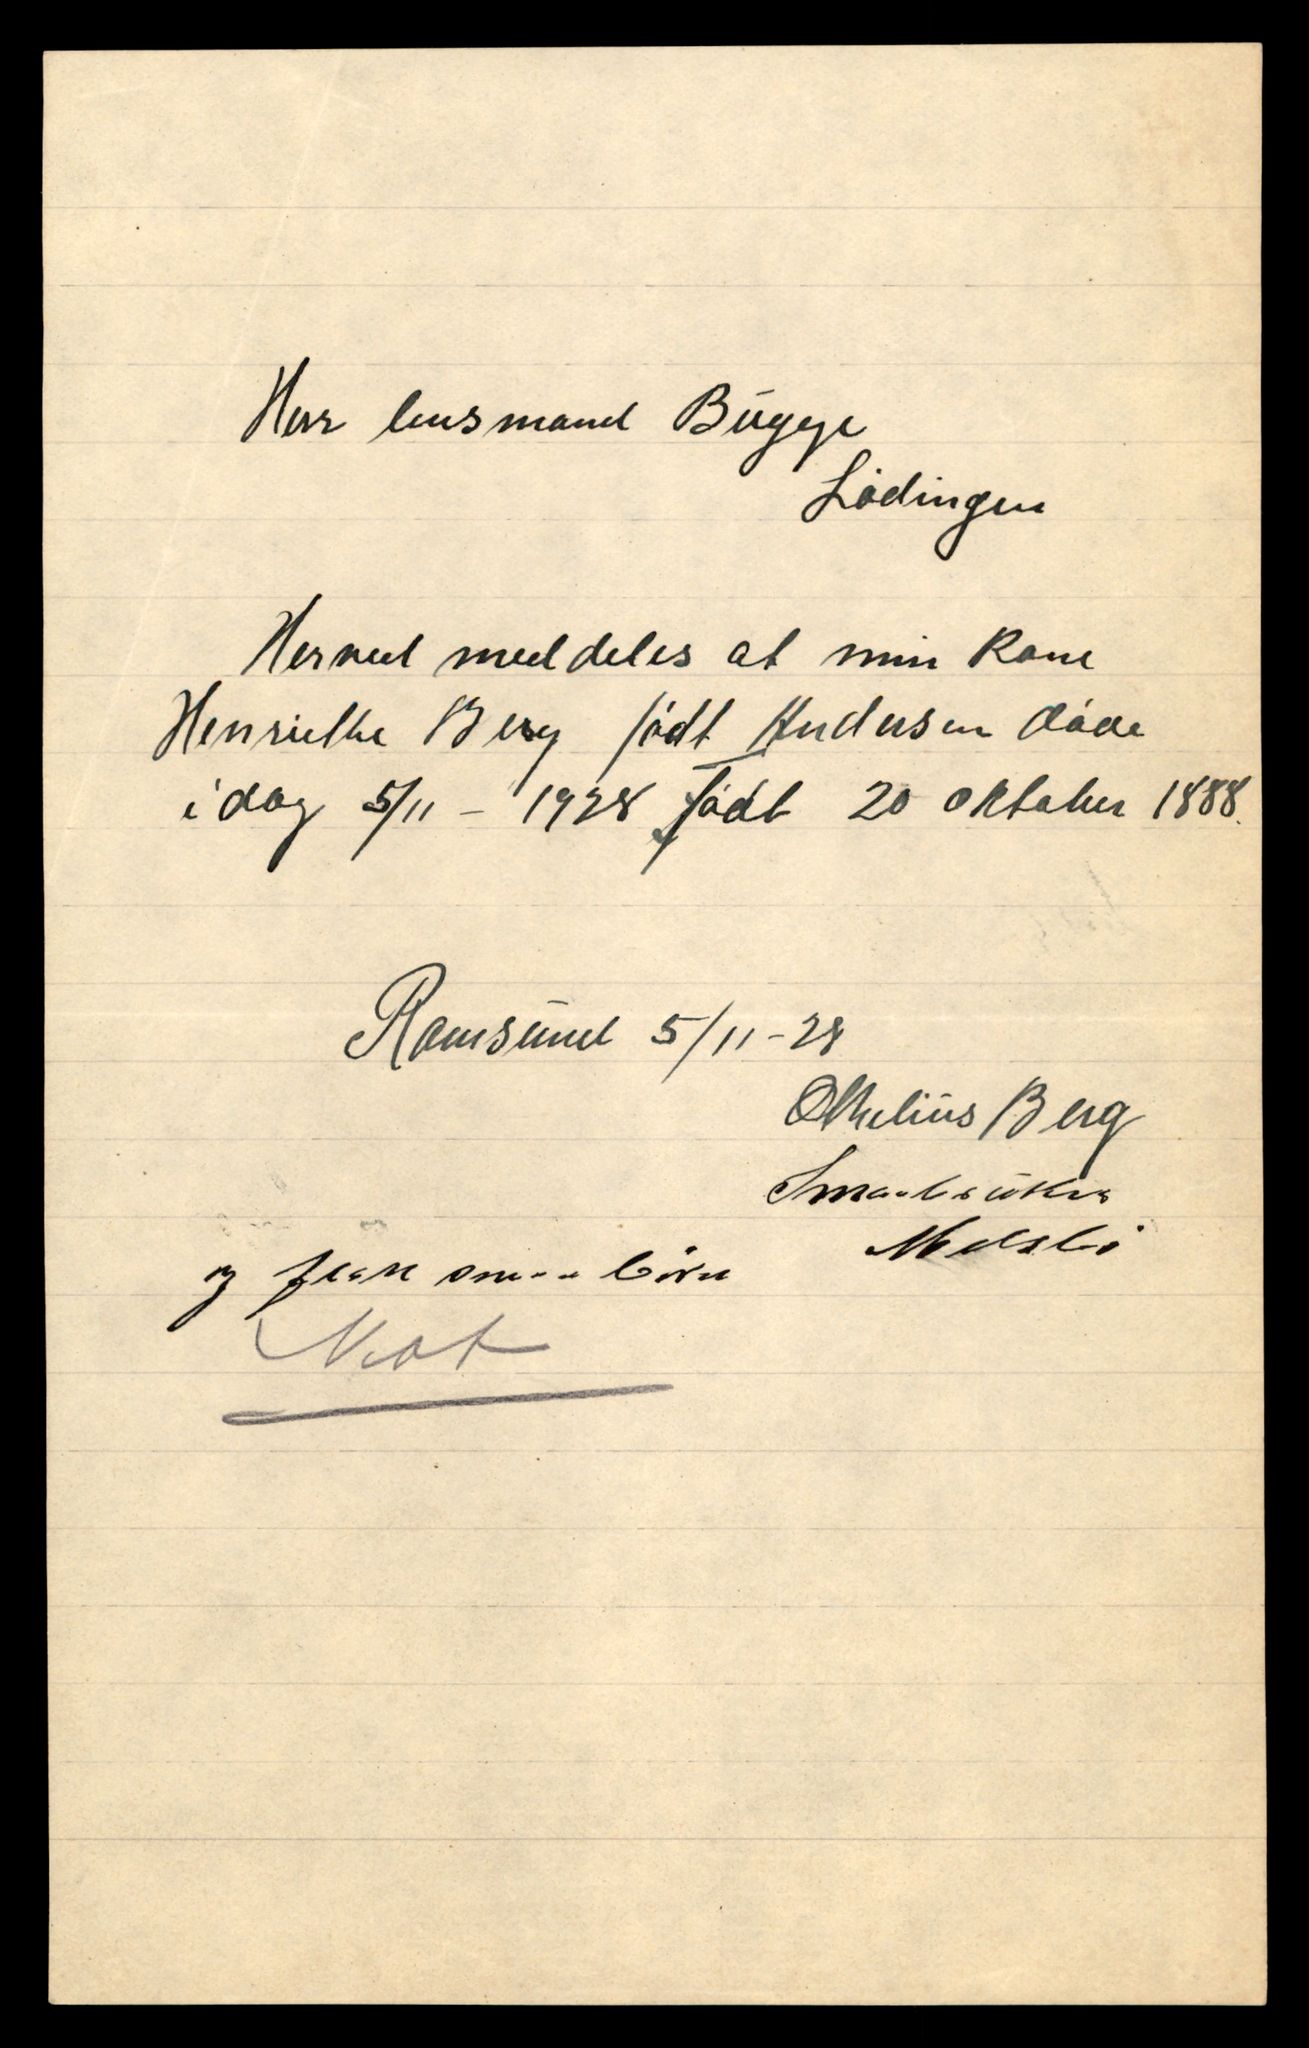 Herr lensmand Bügge
Lödingen
Herved meddeles at min Kone
Henriethe Berg födt Andersen döde
idag 5/11 - 1928 födt 20 oktober 1888.
Ramsünd 5/11-28
Othelius Berg
Smaabrüker
og små börn